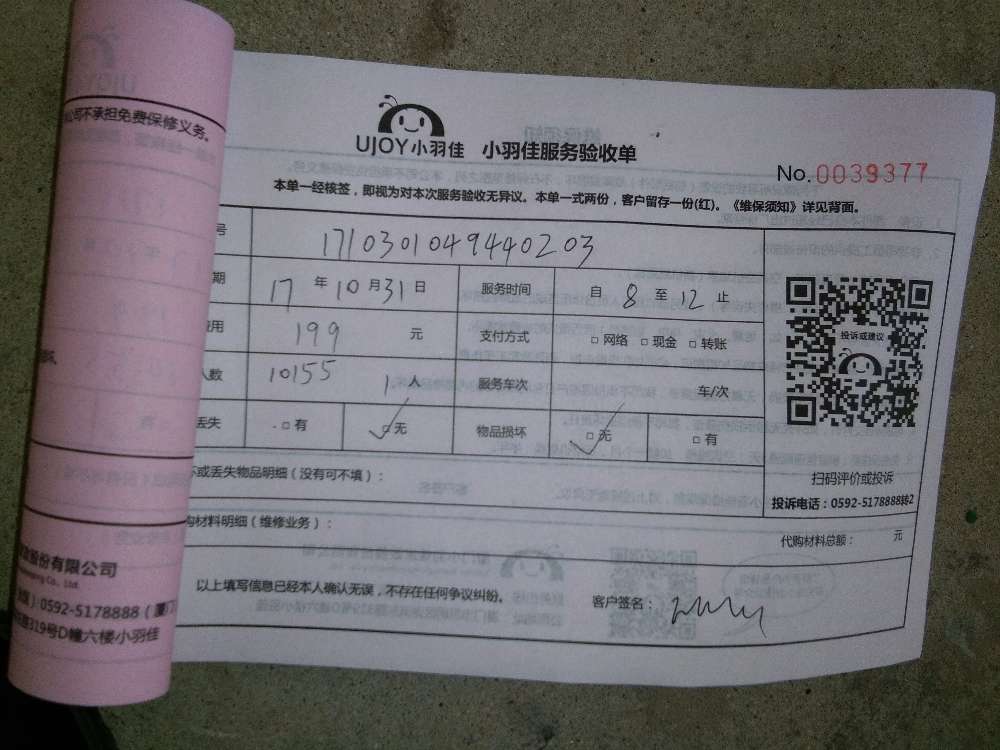 公司不承担免费保修义务。
UJOY小羽佳 小羽佳服务验收单
No.0039377
本单一经核签，即视为对本次服务验收无异议。本单一式两份，客户留存一份(红)。《维保须知》详见背面。
号 171030104944020​3
期 17 年 10 月 31 日 服务时间 自 8 至 12 止
费用 199 元 支付方式 □ 网络 □ 现金 □ 转账
人数 10155 1 人 服务车次 车/次
丢失 □ 有 □ 无 物品损坏 □ 无 □ 有
投诉或建议
扫码评价或投诉
投诉电话：0592-5178888转2
坏或丢失物品明细（没有可不填）：
购材料明细（维修业务）： 代购材料总额： 元
以上填写信息已经本人确认无误，不存在任何争议纠纷。 客户签名：
股份有限公司
Co., Ltd.
0592-5178888（厦门
319号D幢六楼小羽佳